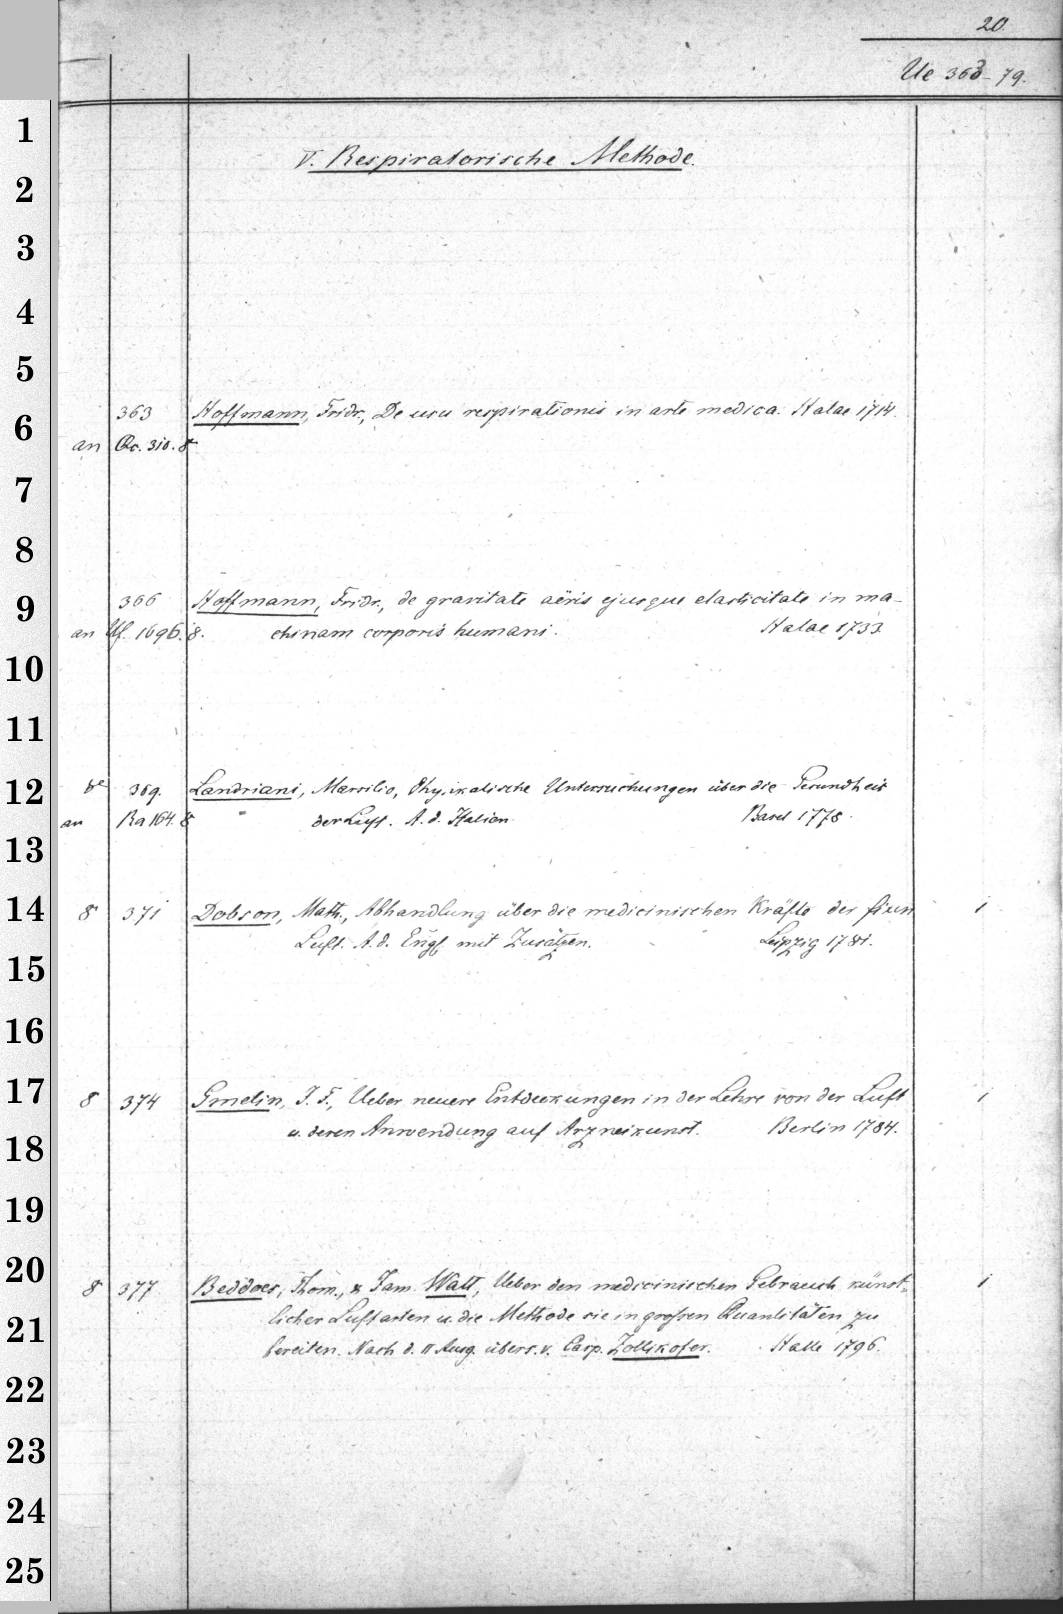 20.
Ue 363-79.
V. Respiratorische Methode.
363 Hoffmann, Fridr., De usu respirationis in arte medica. Halae 1714.
an Qc. 310. 8
366 Hoffmann, Fridr., de gravitate aëris ejusque elasticitate in ma-
an Uf. 1696. 8. chinam corporis humani. Halae 1733.
369. Landriani, Marsilio, Physikalische Untersuchungen über die Gesundheit
an Ra 164. 8 der Luft. A. d. Italien Basel 1778.
8 371 Dobson, Math., Abhandlung über die medicinischen Kräfte der fixen 1
Luft. A. d. Engl mit Zusätzen. Leipzig 1781.
8 374 Gmelin, J. F., Ueber neuere Entdeckungen in der Lehre von der Luft 1
u. deren Anwendung auf Arzneikunst. Berlin 1784.
8 377 Beddoes, Thom., & Jam. Watt, Ueber den medicinischen Gebrauch künst- 1
licher Luftarten u. die Methode sie in grossen Quantitäten zu
bereiten. Nach d. II Ausg. übers. v. Casp. Zollikofer. Halle 1796.
1
2
3
4
5
6
7
8
9
10
11
12
13
14
15
16
17
18
19
20
21
22
23
24
25